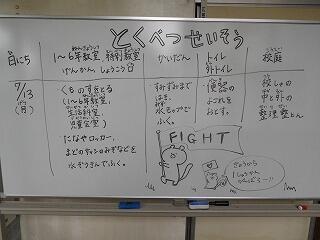 とくべつせいそう
日にち
1～6年教室 特別教室
げんかん、しょうこう口
かいだん
トイレ
外トイレ
校庭
7/13
(月)
くもの すをとる
(1～6年教室、
生活科室、
児童会室)
たなやロッカー、
まどのサッシのみぞなどを
水ぞうきんでふく。
すみずみまで
はき、
水モップで
ふく。
便器の
よごれを
おとす。
校しゃの
中と外の
整理整とん
FIGHT
きょうから
1しゅうかん
がんばろー!!